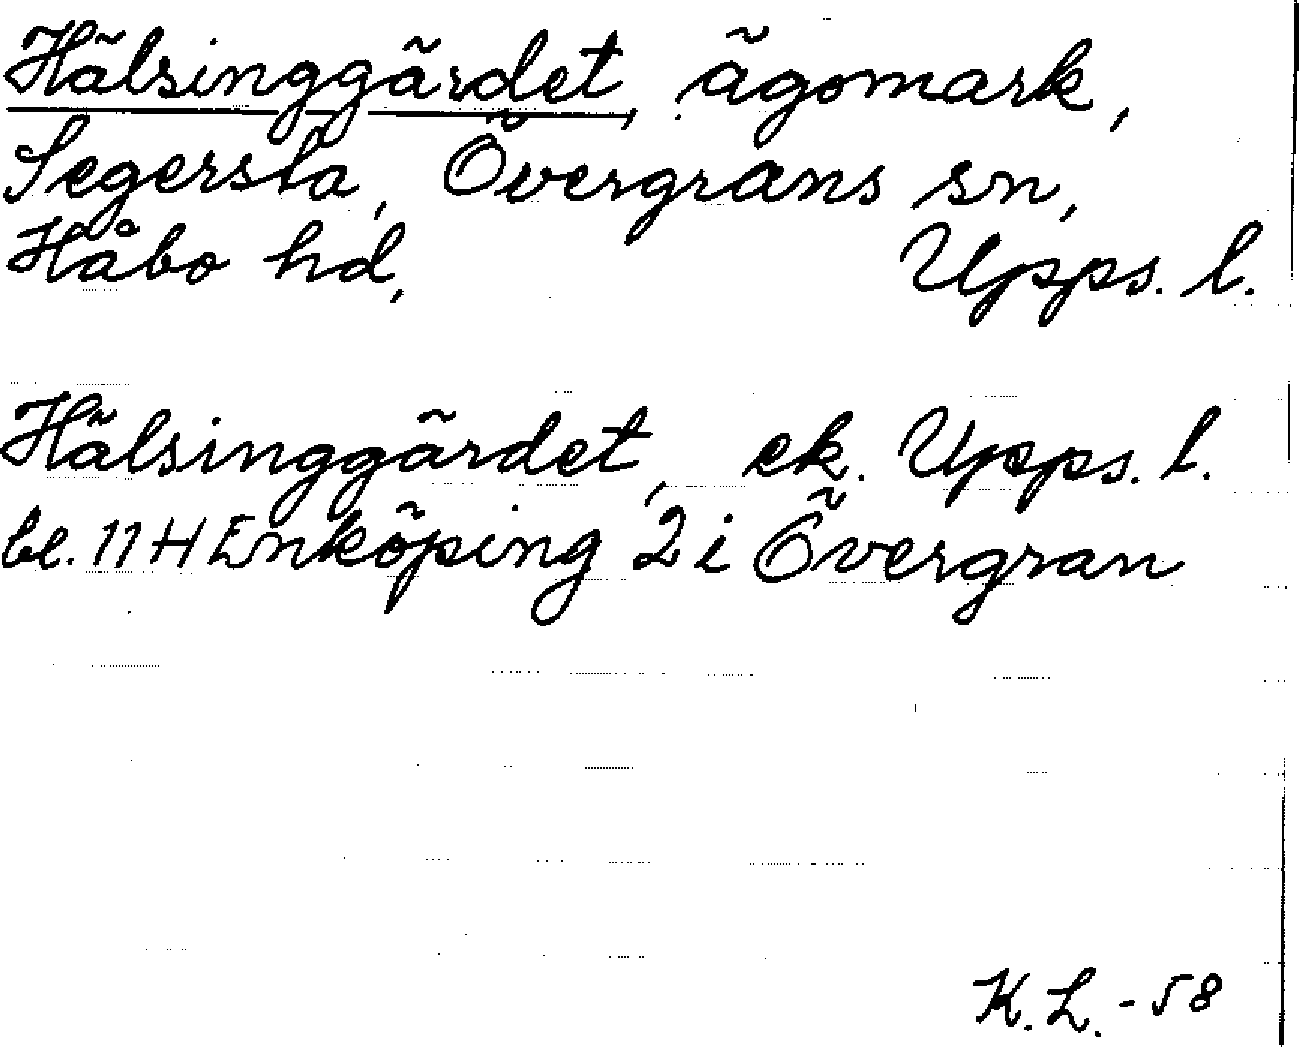 Hälsinggärdet, ägomark,
Segersta, Övergrans sn,
Håbo hd, Upps. l.
Hälsinggärdet, ek. Upps. l.
bl. 11 H Enköping 2 i Övergran
K. L. - 58